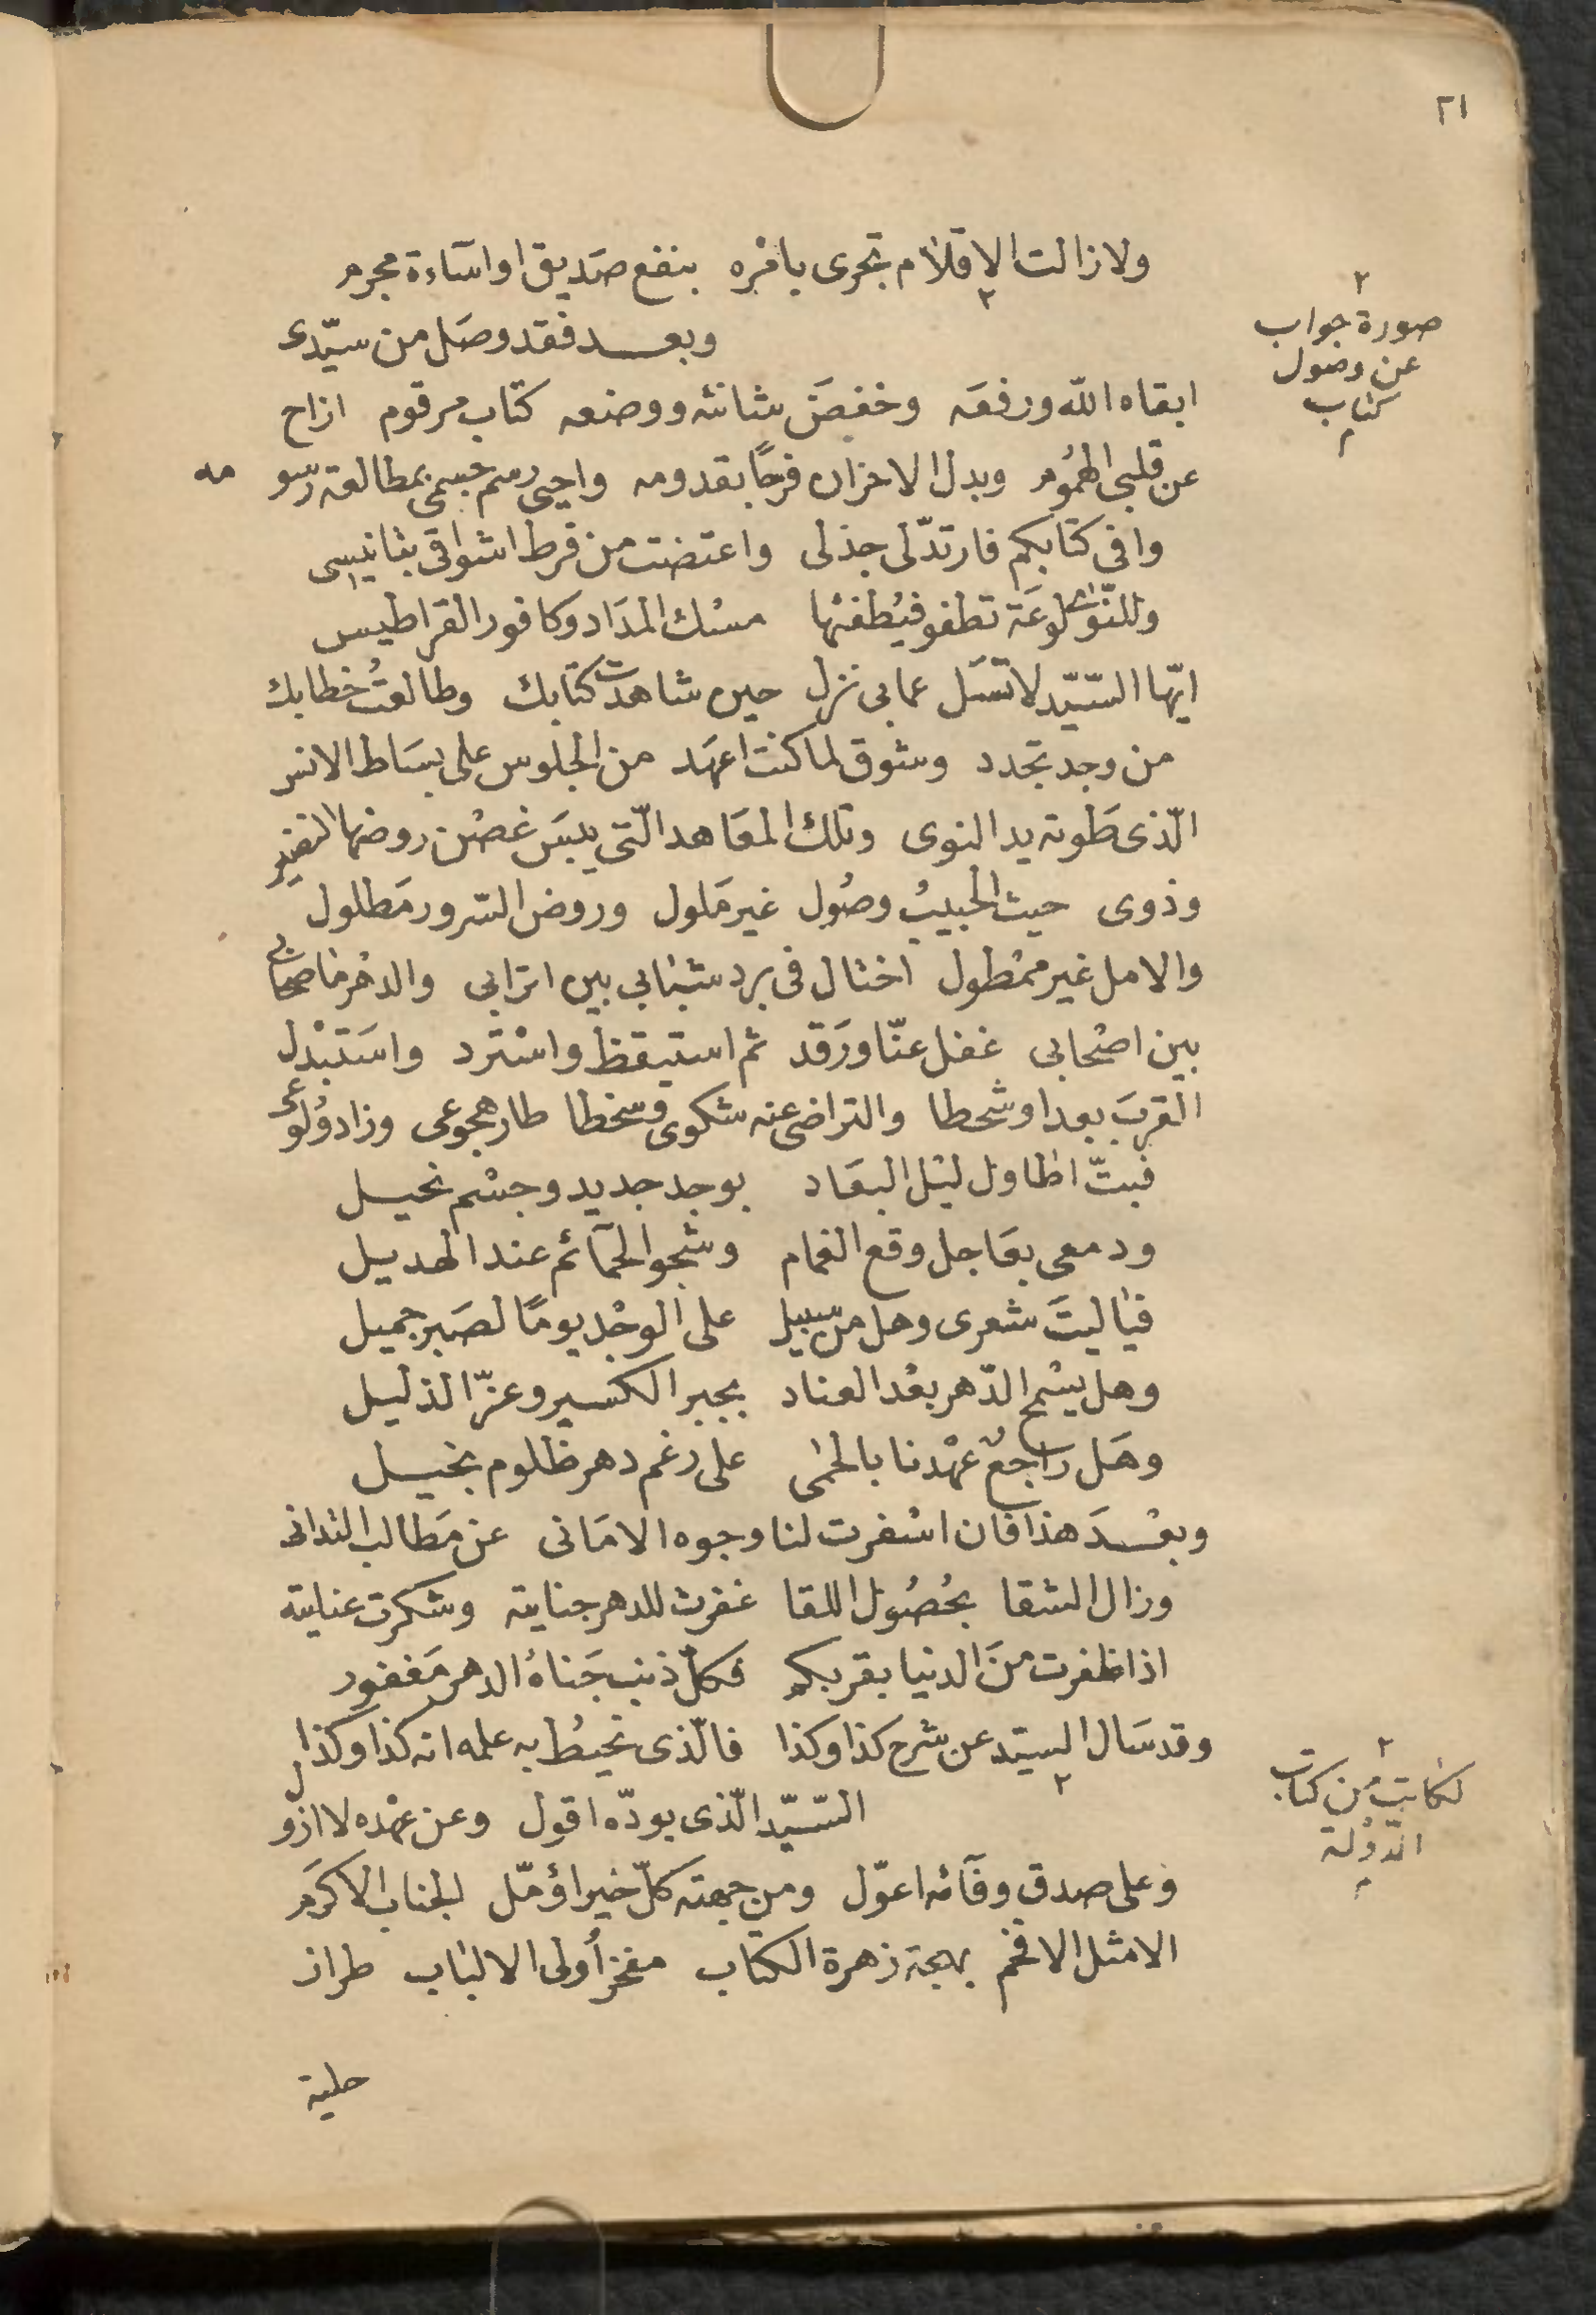 ٢١
ولا زالت الاقلام تجرى بامره بنفع صديق او اساءة مجرم
صورة جواب
عن وصول
كتاب
وبعد فقد وصل من سيّدى
ابقاه الله ورفعه وخفض شانئه ووضعه كتاب مرقوم ازاح
عن قلبي الهمُوم وبدل الاحزان فرحًا بقدومه واحيى رسم جسمى بمطالعة رسومه
وافى كتابكم فارتدّ لى جذلى واعتضت من فرط اشواقى بتانيسى
وللنّوى لوعَة تطفو فيُطفئها مسْك المدَاد وكافور القراطيس
ايّها السّيّد لا تسَل عما بى نزل حين شاهدت كتابك وطالعتُ خطابك
من وجد تجدد وشوق لما كنت اعهَد من الجلوس على بسَاط الانس
الّذى طَوته يد النوى وتلك المعَاهد الّتى يبسَ غصْن روضها النضير
وذوى حيث الحبيبُ وصُول غير مَلول وروض السّرور مَطلول
والامل غير ممْطول اختال فى برد شبَابى بين اترابى والدهْر ناصحًا لى
بين اصْحابى غفل عنّا ورَقد ثم استيقظ واسْترد واسَتبْدل
القربَ بعدا وشحطا والتراضى عنه شكوى وسخطا طار هجوعى وزاد وُلوعى
فبتّ اطاول ليْل البعَاد بوجد جديد وجسْم نحيل
ودمعى بعَاجل وقع الغمام وشجو الحمآئم عند الهديل
فيَا ليتَ شعرى وهل من سبيل على الوجْد يومًا لصَبر جميل
وهل يسْمح الدّهر بعْد العناد بجبر الكسير وعزّ الذليل
وهَل راجعٌ عهْدنا بالحمٰى على رغم دهر ظلوم بخيل
وبعْدَ هذا فان اسْفرت لنا وجوه الامَانى عن مَطالب التدانى
وزال الشقا بحُصُول اللقا غفرت للدهر جنايته وشكرت عنايته
اذا ظفرت منَ الدنيا بقربكم فكلّ ذنب جَناهُ الدهر مَغفور
وقد سَال السيّد عن شرح كذا وكذا فالّذى نحيطُ به علمه انه كذا وكذا
لكاتب من كتاب
الدّوْلة
السّيّد الّذى بودّه اقول وعن عهْده لا ازول
وعلى صدق وفآئه اعوّل ومن جهته كلّ خير اؤمّل الجناب الاكرَم
الامثل الافخم بهجة زهرة الكتاب مفخر اُولى الالبَاب طراز
حلية